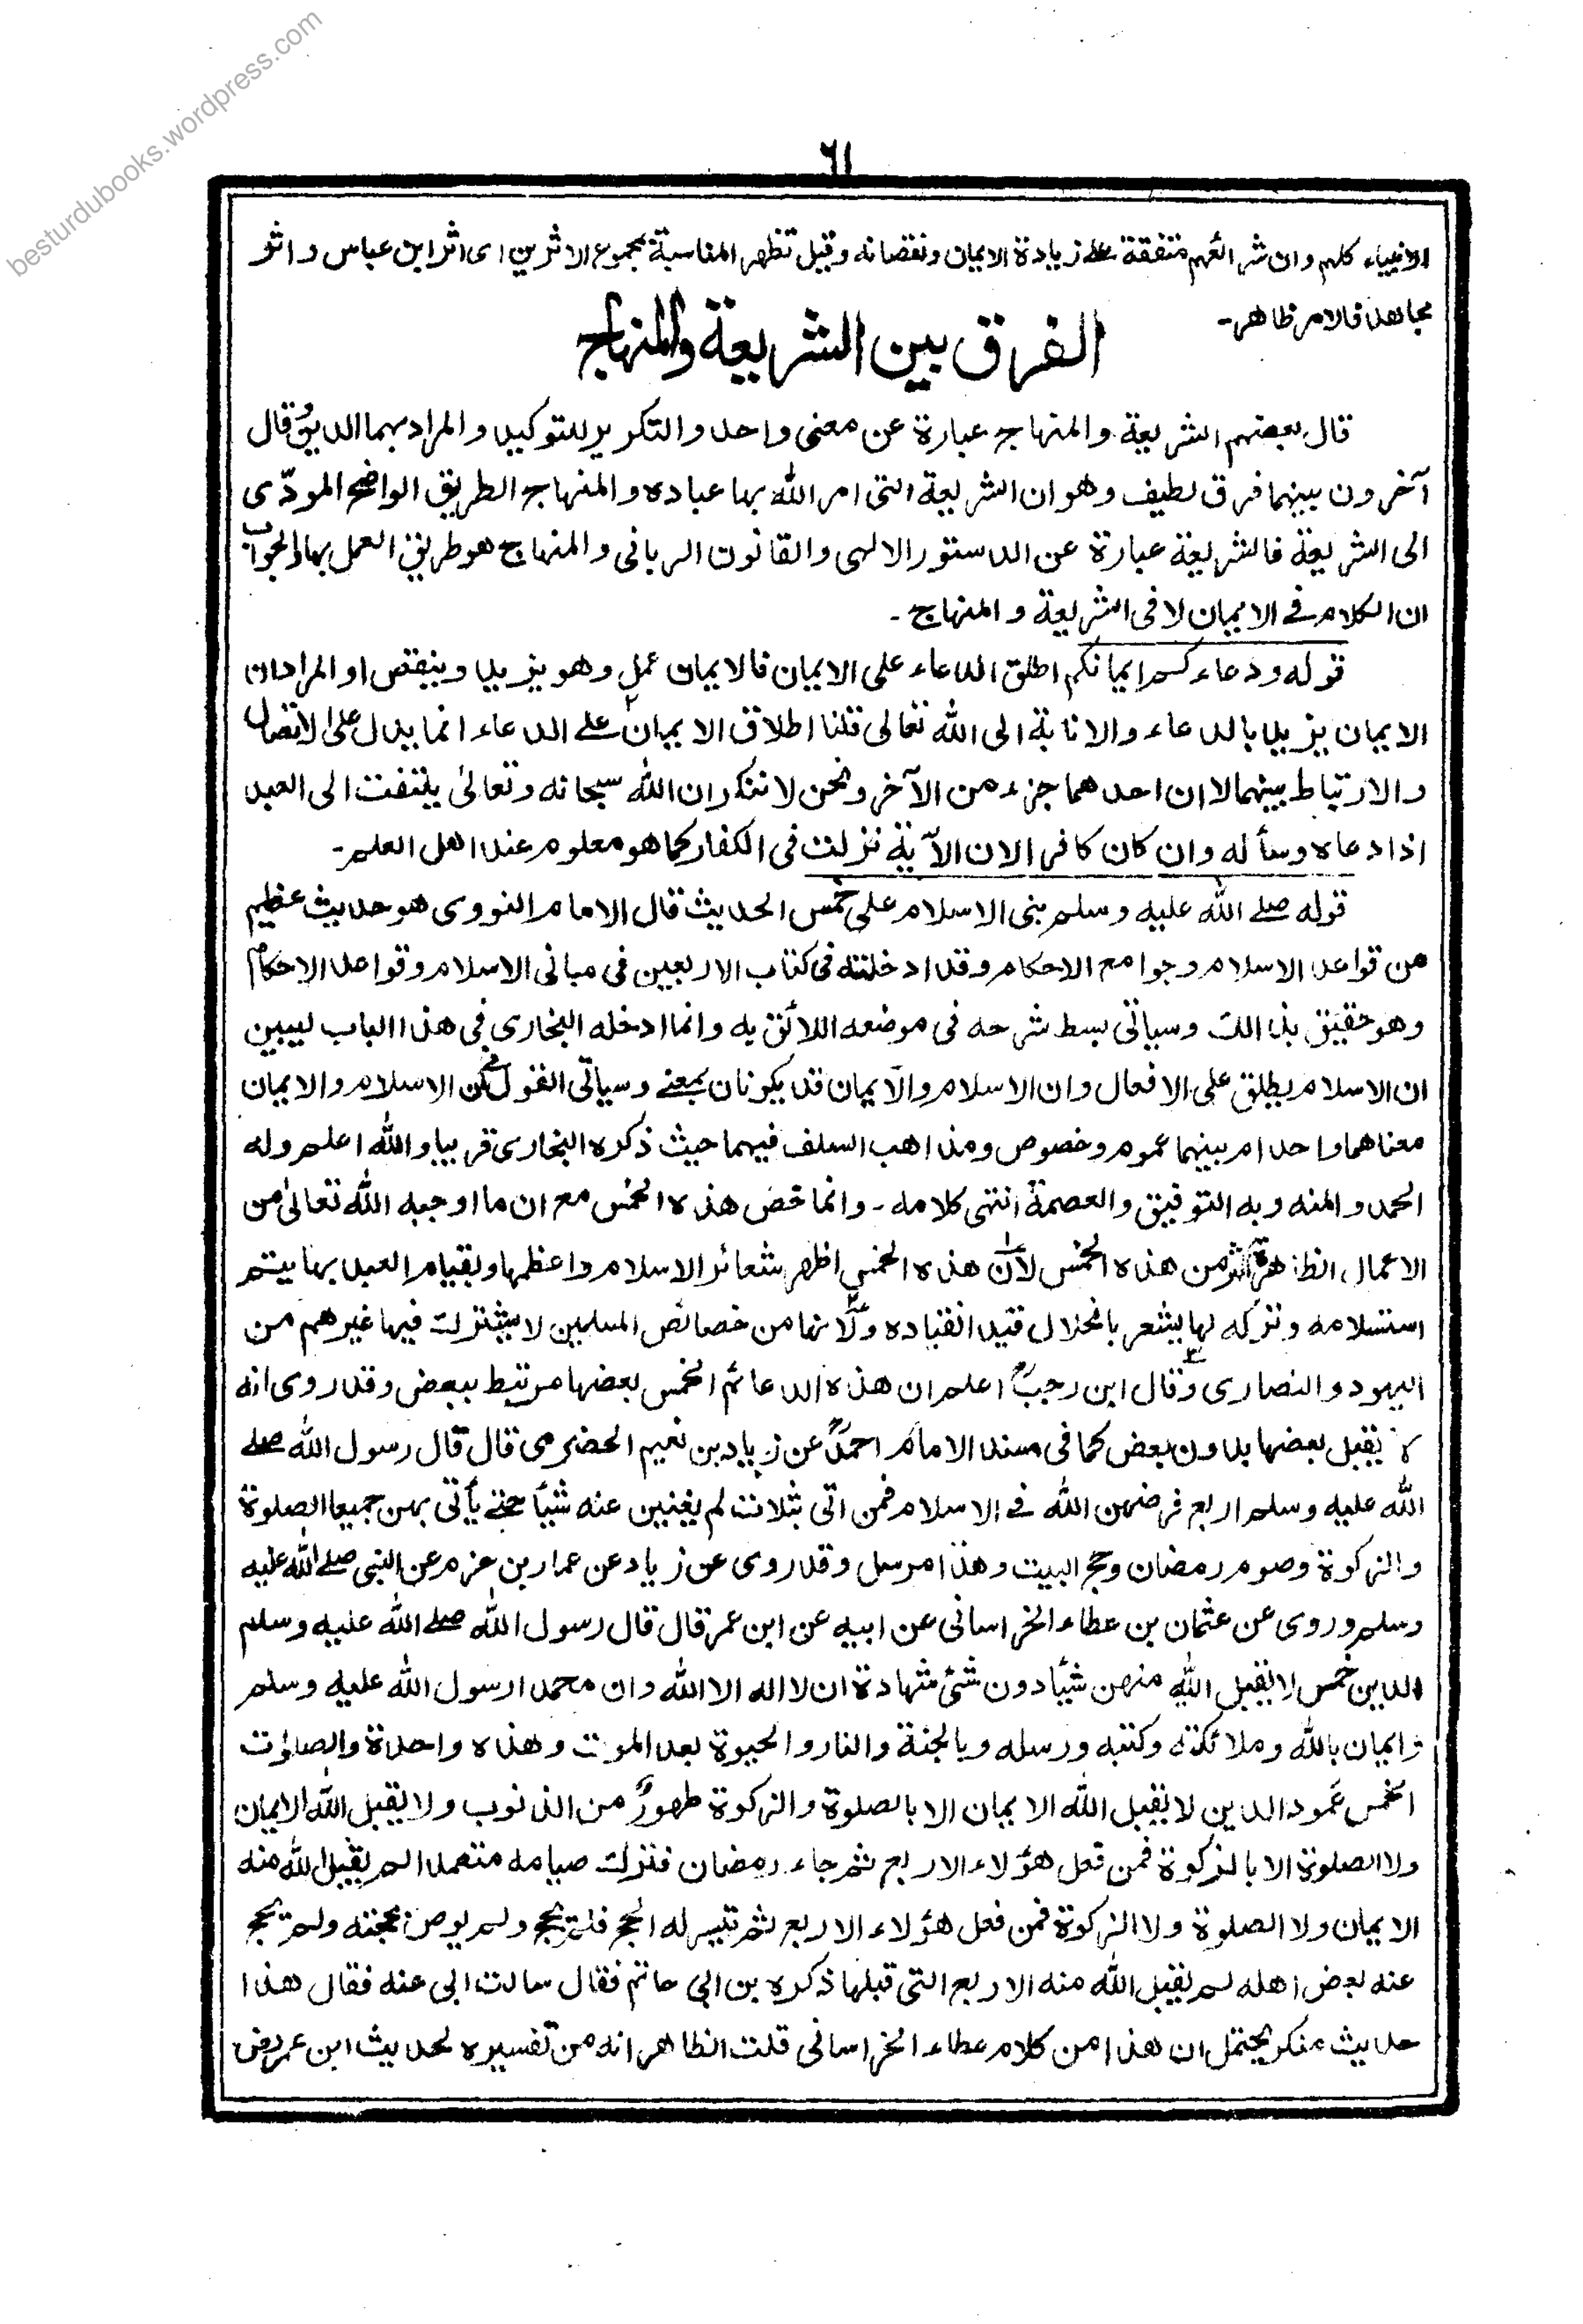 besturdubooks.wordpress.com
٦١
الانبياء كلهم وان شرائعهم متفقة على زيادة الايمان ونقصانه وقيل تظهر المناسبة بمجموع الاثرين اى اثر ابن عباس واثر
مجاهد فالامر ظاهر-
الفرق بين الشريعة والمنهاج
قال بعضهم الشريعة والمنهاج عبارة عن معنى واحد والتكرير للتوكيد والمراد بهما الدين وقال
آخرون بينهما فرق لطيف وهو ان الشريعة التى امر الله بها عباده والمنهاج الطريق الواضح المودّى
الى الشريعة فالشريعة عبارة عن الدستور الالهى والقانون الربانى والمنهاج هو طريق العمل بها والجواب
ان الكلام فى الايمان لا فى الشريعة والمنهاج -
قوله ودعاءكم ايمانكم اطلق الدعاء على الايمان فالايمان عمل وهو يزيد وينقص او المراد ان
الايمان يزيد بالدعاء والانابة الى الله تعالى قلنا اطلاق الايمان على الدعاء انما يدل على الاتصال
والارتباط بينهما لا ان احدهما جزء من الآخر ونحن لا ننكر ان الله سبحانه وتعالىٰ يلتفت الى العبد
اذا دعاه وسأله وان كان كافرا لان الآية نزلت فى الكفار كما هو معلوم عند اهل العلم-
قوله صلے الله عليه وسلم بنى الاسلام على خمس الحديث قال الامام النووى هو حديث عظيم
من قواعد الاسلام وجوامع الاحكام وقد ادخلته فى كتاب الاربعين فى مبانى الاسلام وقواعد الاحكام
وهو حقيق بذالك وسياتى بسط شرحه فى موضعه اللائق به وانما ادخله البخارى فى هذا الباب ليبين
ان الاسلام يطلق على الافعال وان الاسلام والايمان قد يكونان بمعنے وسياتى القول فى كون الاسلام والايمان
معناهما واحد ام بينهما عموم وخصوص ومذاهب السلف فيهما حيث ذكره البخارى قريبا والله اعلم وله
الحمد والمنه وبه التوفيق والعصمة انتهى كلامه - وانما خص هذه الخمس مع ان ما اوجبه الله تعالىٰ من
الاعمال الظاهرة اكثر من هذه الخمس لأن هذه الخمس اظهر شعائر الاسلام واعظمها وبقيام العبد بها يتم
استسلامه وتركه لها يشعر بانحلال قيد انقياده ولانها من خصائص المسلمين لا يشترك فيها غيرهم من
اليهود والنصارى وقال ابن رجبؒ اعلم ان هذه الدعائم الخمس بعضها مرتبط ببعض وقد روى انه
لا يقبل بعضها بدون بعض كما فى مسند الامام احمدؒ عن زياد بن نعيم الحضرمى قال قال رسول الله صلے
الله عليه وسلم اربع فرضهن الله فے الاسلام فمن اتى بثلاث لم يغنين عنه شيأ حتے يأتى بهن جميعا الصلوة
والزكوة وصوم رمضان وحج البيت وهذا مرسل وقد روى عن زياد عن عمار بن حزم عن النبى صلے الله عليه
وسلم وروى عن عثمان بن عطاء الخراسانى عن ابيه عن ابن عمر قال قال رسول الله صلے الله عليه وسلم
الدين خمس لا يقبل الله منهن شيأ دون شئ شهادة ان لا اله الا الله وان محمدا رسول الله عليه وسلم
وايمان بالله وملائكته وكتبه ورسله وبالجنة والنار والحيوة بعد الموت وهذه واحدة والصلوٰت
الخمس عمود الدين لا يقبل الله الايمان الا بالصلوة والزكوة طهور من الذنوب ولا يقبل الله الايمان
ولا الصلوة الا بالزكوة فمن فعل هؤلاء الاربع ثم جاء رمضان فترك صيامه متعمدا لم يقبل الله منه
الايمان ولا الصلوة ولا الزكوة فمن فعل هؤلاء الاربع ثم تيسر له الحج فلم يحج ولم يوص بحجته ولم يحج
عنه بعض اهله لم يقبل الله منه الاربع التى قبلها ذكره بن ابى حاتم فقال سالت ابى عنه فقال هذا
حديث منكر يحتمل ان هذا من كلام عطاء الخراسانى قلت الظاهر انه من تفسيره لحديث ابن عمر رض